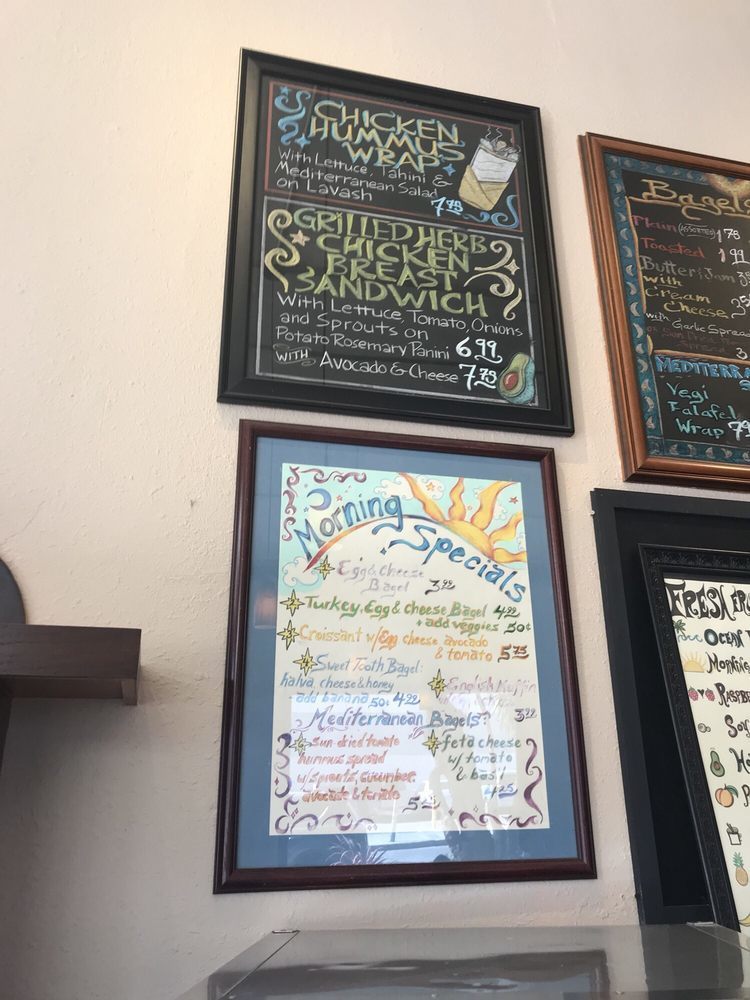 CHICKEN
HUMMUS
WRAP
With Lettuce, Tahini &
Mediterranean Salad
on Lavash
7.79
GRILLED HERB
CHICKEN
BREAST
SANDWICH
With Lettuce, Tomato, Onions
and Sprouts on
Potato Rosemary Panini 6.99
WITH Avocado & Cheese 7.79
Bagels
Plain (ASSORTED) 1.75
Toasted 1.99
Butter, Jam
with
Cream
Cheese
with Garlic Spread
MEDITERRA
Vegi
Falafel
Wrap
Morning
Specials
Egg & Cheese
Bagel 3.99
Turkey, Egg & cheese Bagel 4.99
+ add veggies 50¢
Croissant w/Egg cheese avocado
& tomato 5.75
Sweet Tooth Bagel:
halva, cheese & honey
add banana 50¢ 4.99
English Muffin
3.99
Mediterranean Bagels?
sun dried tomato
hummus spread
w/sprouts, cucumber,
avocado & tomato
feta cheese
w/ tomato
& basil
4.25
FRESH
OCEAN
MORNING
RASPB